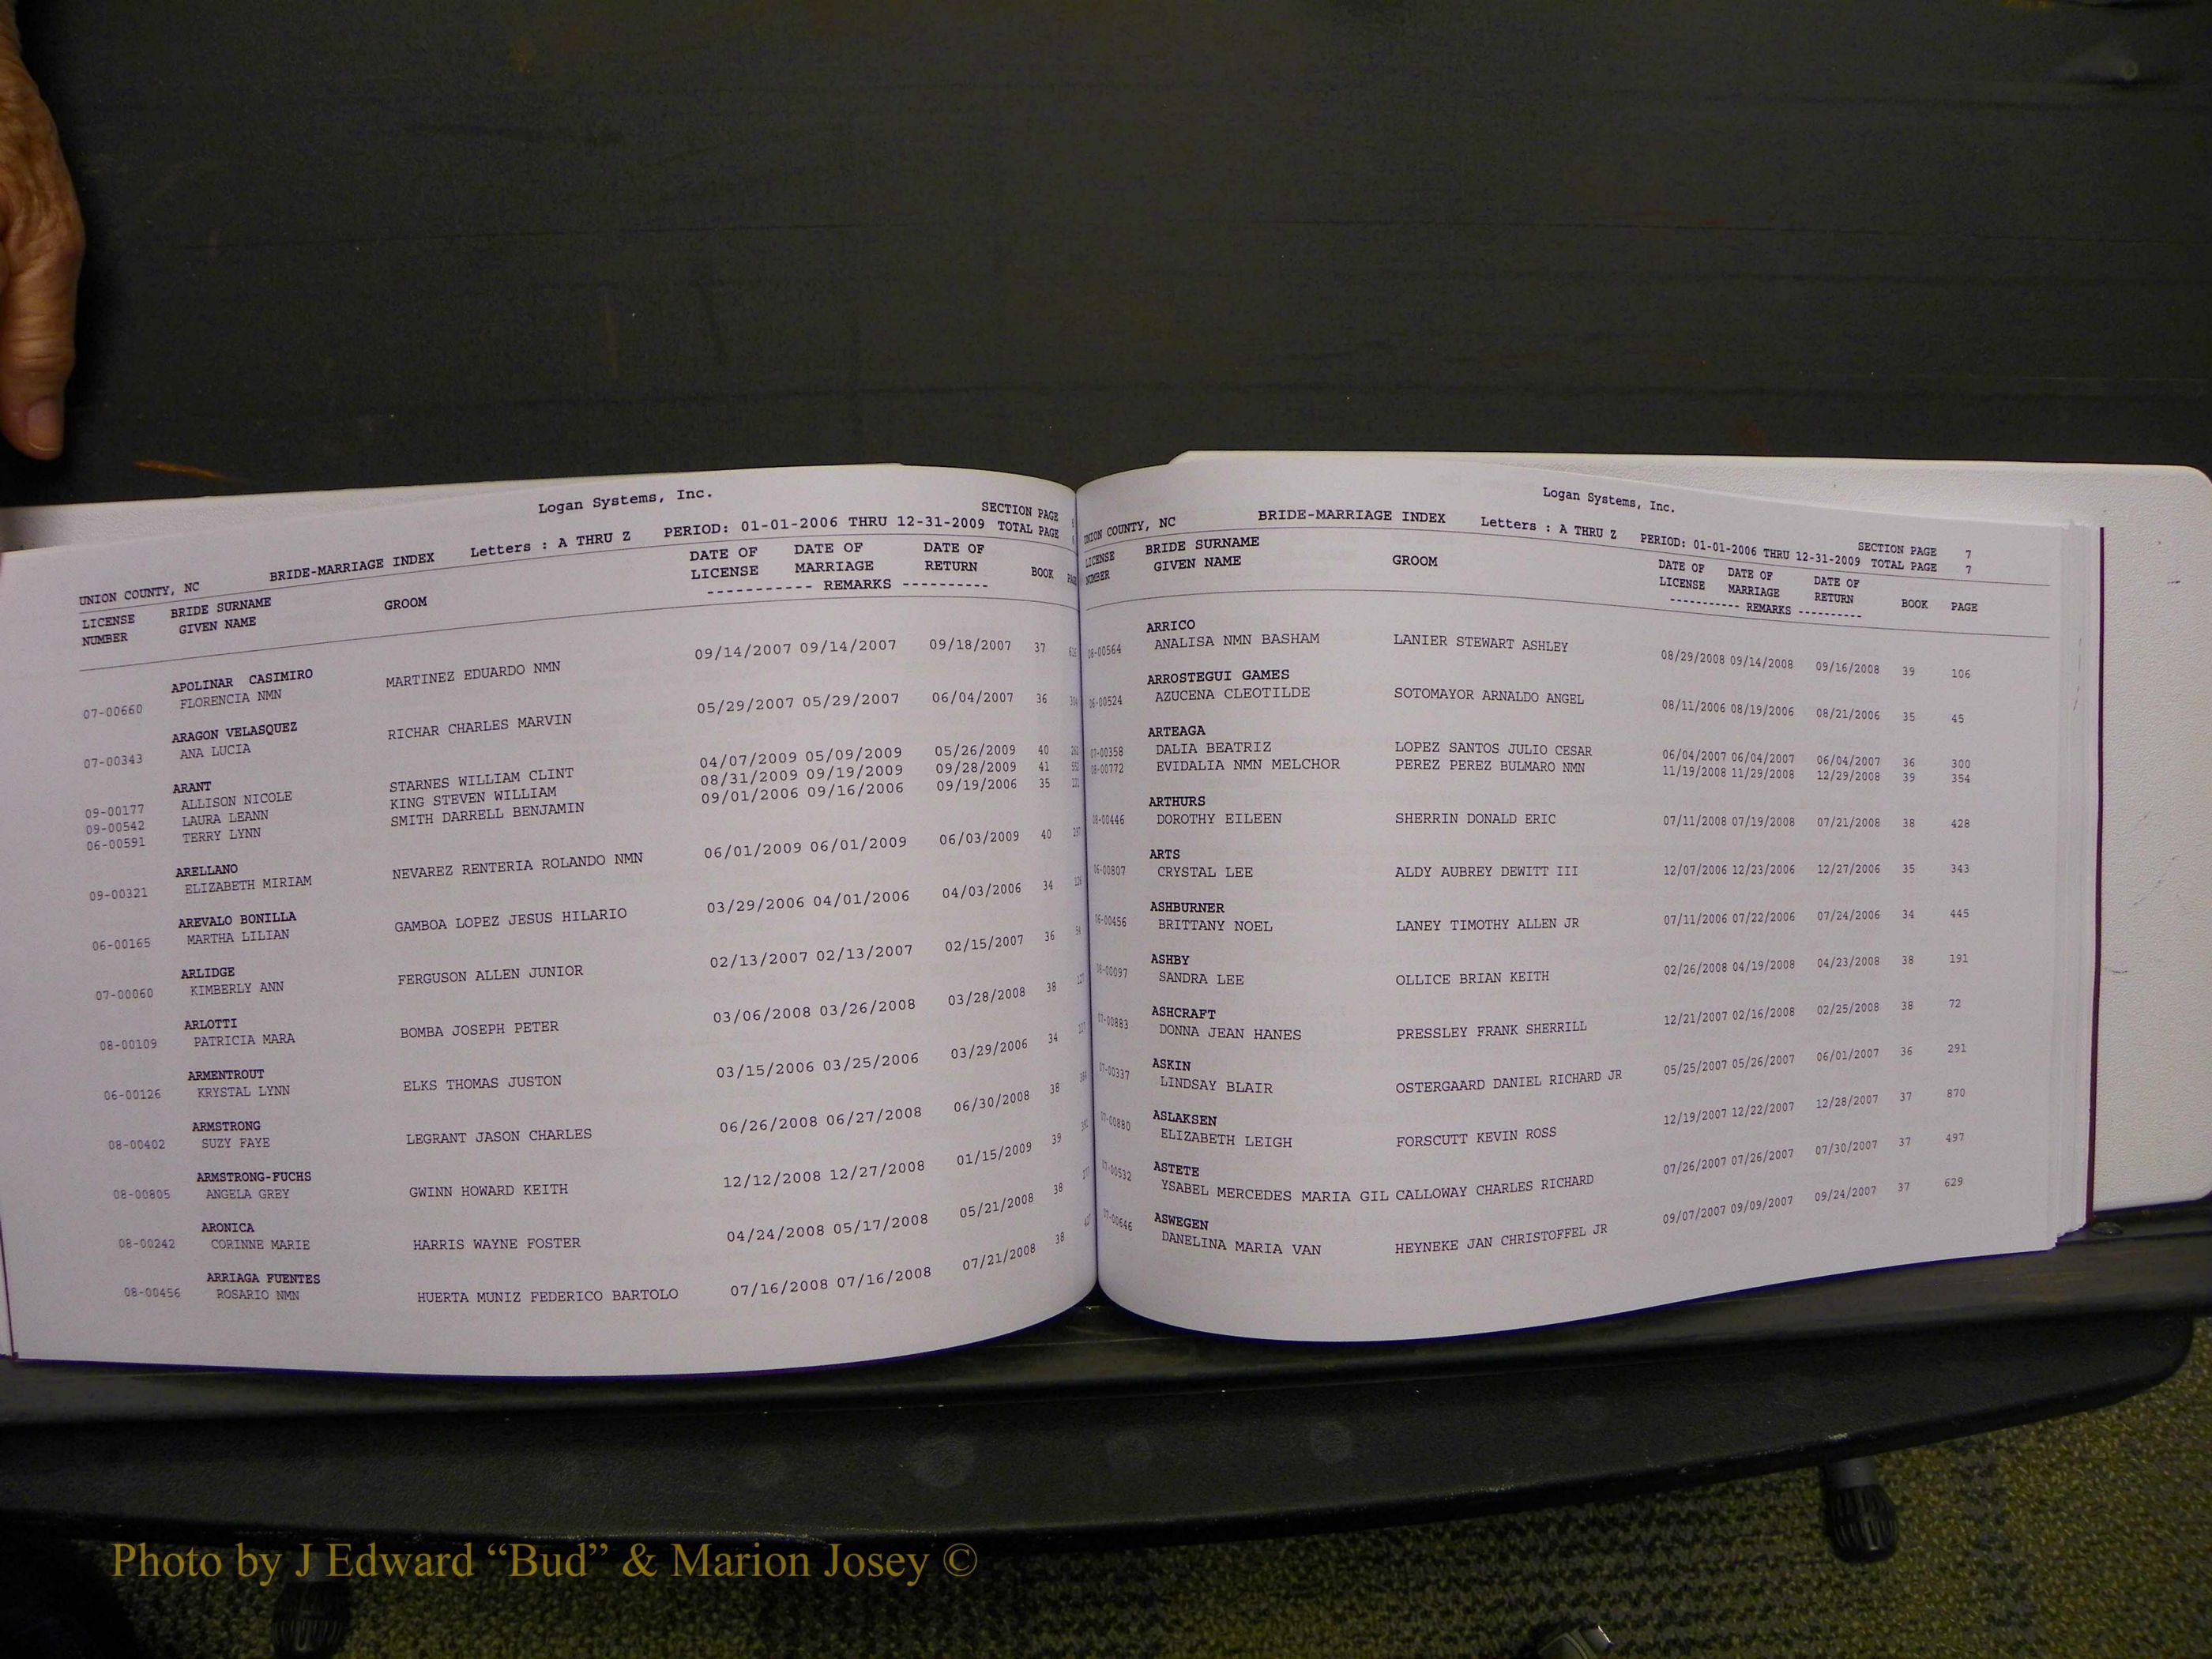 Logan Systems, Inc.
UNION COUNTY, NC BRIDE-MARRIAGE INDEX Letters : A THRU Z PERIOD: 01-01-2006 THRU 12-31-2009 SECTION PAGE
TOTAL PAGE
LICENSE BRIDE SURNAME GROOM DATE OF DATE OF DATE OF
NUMBER GIVEN NAME LICENSE MARRIAGE RETURN BOOK
----------- REMARKS ----------
APOLINAR CASIMIRO
07-00660 FLORENCIA NMN MARTINEZ EDUARDO NMN 09/14/2007 09/14/2007 09/18/2007 37
ARAGON VELASQUEZ
07-00343 ANA LUCIA RICHAR CHARLES MARVIN 05/29/2007 05/29/2007 06/04/2007 36
ARANT
09-00177 ALLISON NICOLE STARNES WILLIAM CLINT 04/07/2009 05/09/2009 05/26/2009 40
09-00542 LAURA LEANN KING STEVEN WILLIAM 08/31/2009 09/19/2009 09/28/2009 41
06-00591 TERRY LYNN SMITH DARRELL BENJAMIN 09/01/2006 09/16/2006 09/19/2006 35
ARELLANO
09-00321 ELIZABETH MIRIAM NEVAREZ RENTERIA ROLANDO NMN 06/01/2009 06/01/2009 06/03/2009 40
AREVALO BONILLA
06-00165 MARTHA LILIAN GAMBOA LOPEZ JESUS HILARIO 03/29/2006 04/01/2006 04/03/2006 34
ARLIDGE
07-00060 KIMBERLY ANN FERGUSON ALLEN JUNIOR 02/13/2007 02/13/2007 02/15/2007 36
ARLOTTI
08-00109 PATRICIA MARA BOMBA JOSEPH PETER 03/06/2008 03/26/2008 03/28/2008 38
ARMENTROUT
06-00126 KRYSTAL LYNN ELKS THOMAS JUSTON 03/15/2006 03/25/2006 03/29/2006 34
ARMSTRONG
08-00402 SUZY FAYE LEGRANT JASON CHARLES 06/26/2008 06/27/2008 06/30/2008 38
ARMSTRONG-FUCHS
08-00805 ANGELA GREY GWINN HOWARD KEITH 12/12/2008 12/27/2008 01/15/2009 39
ARONICA
08-00242 CORINNE MARIE HARRIS WAYNE FOSTER 04/24/2008 05/17/2008 05/21/2008 38
ARRIAGA FUENTES
08-00456 ROSARIO NMN HUERTA MUNIZ FEDERICO BARTOLO 07/16/2008 07/16/2008 07/21/2008 38
Logan Systems, Inc.
UNION COUNTY, NC BRIDE-MARRIAGE INDEX Letters : A THRU Z PERIOD: 01-01-2006 THRU 12-31-2009 SECTION PAGE 7
TOTAL PAGE 7
LICENSE BRIDE SURNAME GROOM DATE OF DATE OF DATE OF
NUMBER GIVEN NAME LICENSE MARRIAGE RETURN BOOK PAGE
----------- REMARKS ----------
ARRICO
08-00564 ANALISA NMN BASHAM LANIER STEWART ASHLEY 08/29/2008 09/14/2008 09/16/2008 39 106
ARROSTEGUI GAMES
06-00524 AZUCENA CLEOTILDE SOTOMAYOR ARNALDO ANGEL 08/11/2006 08/19/2006 08/21/2006 35 45
ARTEAGA
07-00358 DALIA BEATRIZ LOPEZ SANTOS JULIO CESAR 06/04/2007 06/04/2007 06/04/2007 36 300
08-00772 EVIDALIA NMN MELCHOR PEREZ PEREZ BULMARO NMN 11/19/2008 11/29/2008 12/29/2008 39 354
ARTHURS
08-00446 DOROTHY EILEEN SHERRIN DONALD ERIC 07/11/2008 07/19/2008 07/21/2008 38 428
ARTS
06-00807 CRYSTAL LEE ALDY AUBREY DEWITT III 12/07/2006 12/23/2006 12/27/2006 35 343
ASHBURNER
06-00456 BRITTANY NOEL LANEY TIMOTHY ALLEN JR 07/11/2006 07/22/2006 07/24/2006 34 445
ASHBY
08-00097 SANDRA LEE OLLICE BRIAN KEITH 02/26/2008 04/19/2008 04/23/2008 38 191
ASHCRAFT
07-00883 DONNA JEAN HANES PRESSLEY FRANK SHERRILL 12/21/2007 02/16/2008 02/25/2008 38 72
ASKIN
07-00337 LINDSAY BLAIR OSTERGAARD DANIEL RICHARD JR 05/25/2007 05/26/2007 06/01/2007 36 291
ASLAKSEN
07-00880 ELIZABETH LEIGH FORSCUTT KEVIN ROSS 12/19/2007 12/22/2007 12/28/2007 37 870
ASTETE
07-00532 YSABEL MERCEDES MARIA GIL CALLOWAY CHARLES RICHARD 07/26/2007 07/26/2007 07/30/2007 37 497
ASWEGEN
07-00646 DANELINA MARIA VAN HEYNEKE JAN CHRISTOFFEL JR 09/07/2007 09/09/2007 09/24/2007 37 629
Photo by J Edward “Bud” & Marion Josey ©